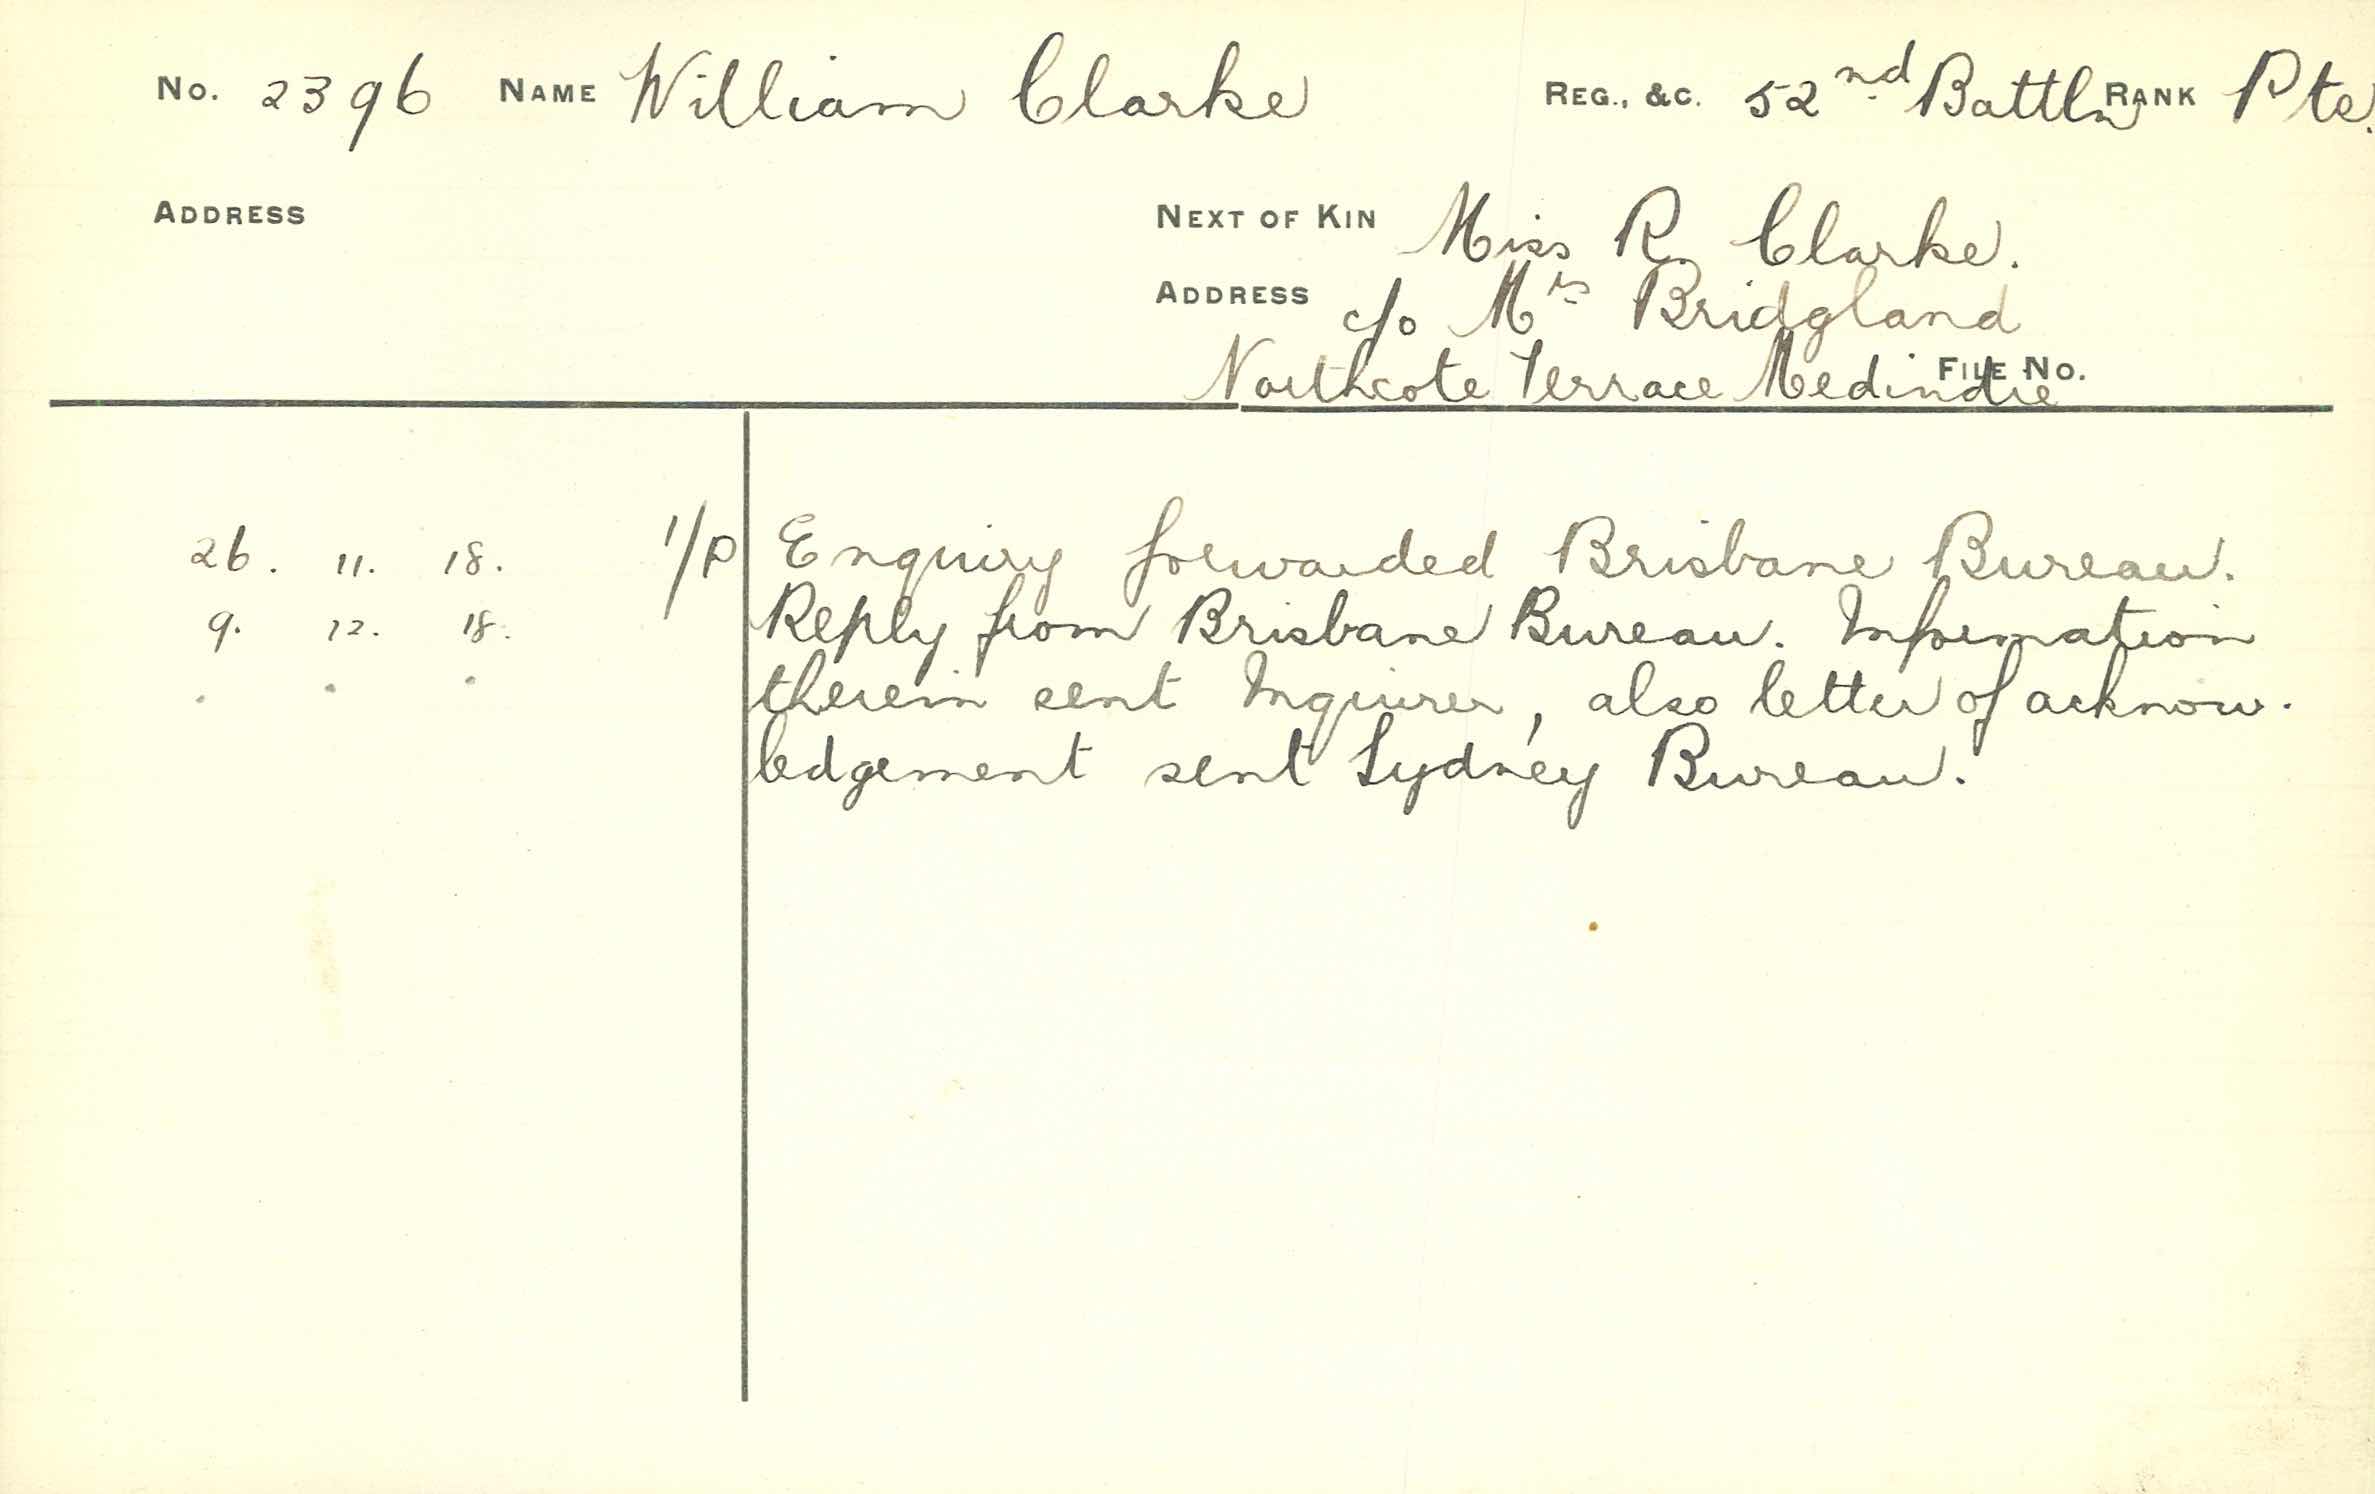 No. 2396 NAME William Clarke REG., &C. 52nd Battln RANK Pte.
ADDRESS NEXT OF KIN Miss R. Clarke.
ADDRESS c/o Mrs Bridgland
Northcote Terrace Medindie FILE No.
26. 11. 18. 1/P Enquiry forwarded Brisbane Bureau.
9. 12. 18. Reply from Brisbane Bureau. Information
. . . therein sent Inquirer, also letter of acknow-
ledgement sent Sydney Bureau.